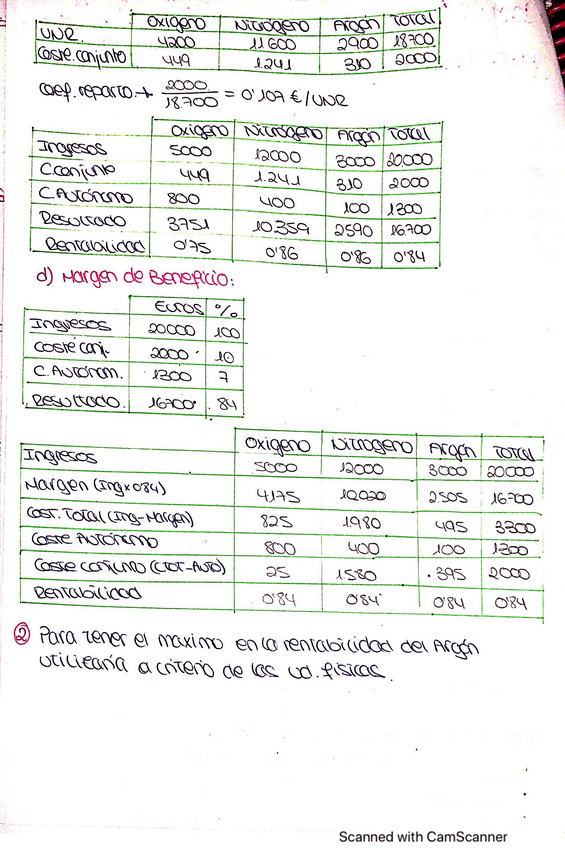 Oxigeno Nitrógeno Argón Total
UNR. 4200 11600 2900 18700
Coste.conjunto 449 1.241 310 2000
Coef. reparto. → 2000/18700 = 0'107 €/UNR
Oxigeno Nitrógeno Argón Total
Ingresos 5000 12000 3000 20.000
C.conjunto 449 1.241 310 2000
C.Autónomo 800 400 100 1300
Resultado 3751 10.359 2590 16700
Rentabilidad 0'75 0'86 0'86 0'84
d) Margen de Beneficio:
Euros %
Ingresos 20000 100
Coste conj. 2000 10
C. Autónom. 1300 7
Resultado. 16700 84
Oxigeno Nitrogeno Argón Total
Ingresos 5000 12000 3000 20000
Margen (Ing x 084) 4175 10020 2505 16700
Cost. Total (Ing-Margen) 825 1980 495 3300
Coste Autónomo 800 400 100 1300
Coste conjunto (CTOT-AUTO) 25 1580 395 2000
Rentabilidad 0'84 0'84 0'84 0'84
② Para tener el maximo en la rentabilidad del Argón
utilizaría a criterio de las ud. fisicas.
Scanned with CamScanner